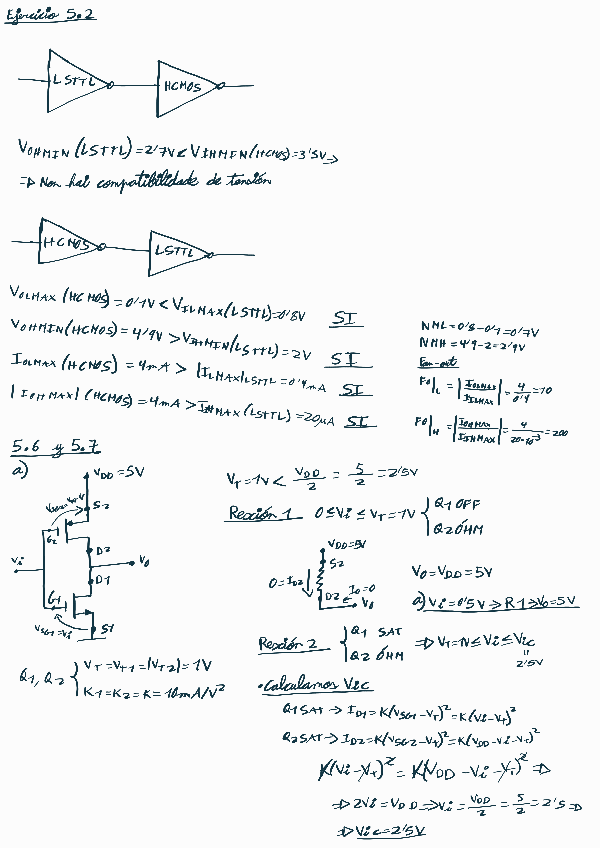 Ejercicio 5.2
LSTTL
HCMOS
VOHMIN (LSTTL) = 2'7V < VIHMIN (HCMOS) = 3'5V ⇒
⇒ Non hai compatibilidade de tensión
HCMOS
LSTTL
VOLMAX (HCMOS) = 0'1V < VILMAX (LSTTL) = 0'8V SI
VOHMIN (HCMOS) = 4'9V > VIHMIN (LSTTL) = 2V SI
IOLMAX (HCMOS) = 4mA > |ILMAX|LSTTL = 0'4mA SI
|IOHMAX| (HCMOS) = 4mA > IIHMAX (LSTTL) = 20μA SI
NML = 0'8 - 0'1 = 0'7V
NMH = 4'9 - 2 = 2'9V
Fan-out
FO|L = |IOLMAX / IILMAX| = 4 / 0'4 = 10
FO|H = |IOHMAX / IIHMAX| = 4 / 20·10^-3 = 200
5.6 y 5.7
a)
VDD = 5V
S2
G2
D2
Vi
Vo
D1
G1
VSG1 = Vi
S1
Q1, Q2 { VT = VT1 = |VT2| = 1V
K1 = K2 = K = 10mA/V²
VT = 1V < VDD / 2 = 5 / 2 = 2'5V
Rexión 1 0 ≤ Vi ≤ VT = 1V { Q1 OFF
Q2 ÓHM
VDD = 5V
S2
0 = ID2
D2
Io = 0
Vo
Vo = VDD = 5V
a) Vi = 0'5V ⇒ R1 ⇒ Vo = 5V
Rexión 2 { Q1 SAT
Q2 ÓHM
⇒ VT = 1V ≤ Vi ≤ Vic
2'5V
• Calculamos Vic
Q1 SAT → ID1 = K(VSG1 - VT)² = K(Vi - VT)²
Q2 SAT → ID2 = K(VSG2 - VT)² = K(VDD - Vi - VT)²
K(Vi - VT)² = K(VDD - Vi - VT)² ⇒
⇒ 2Vi = VDD ⇒ Vi = VDD / 2 = 5 / 2 = 2'5 ⇒
⇒ Vic = 2'5V